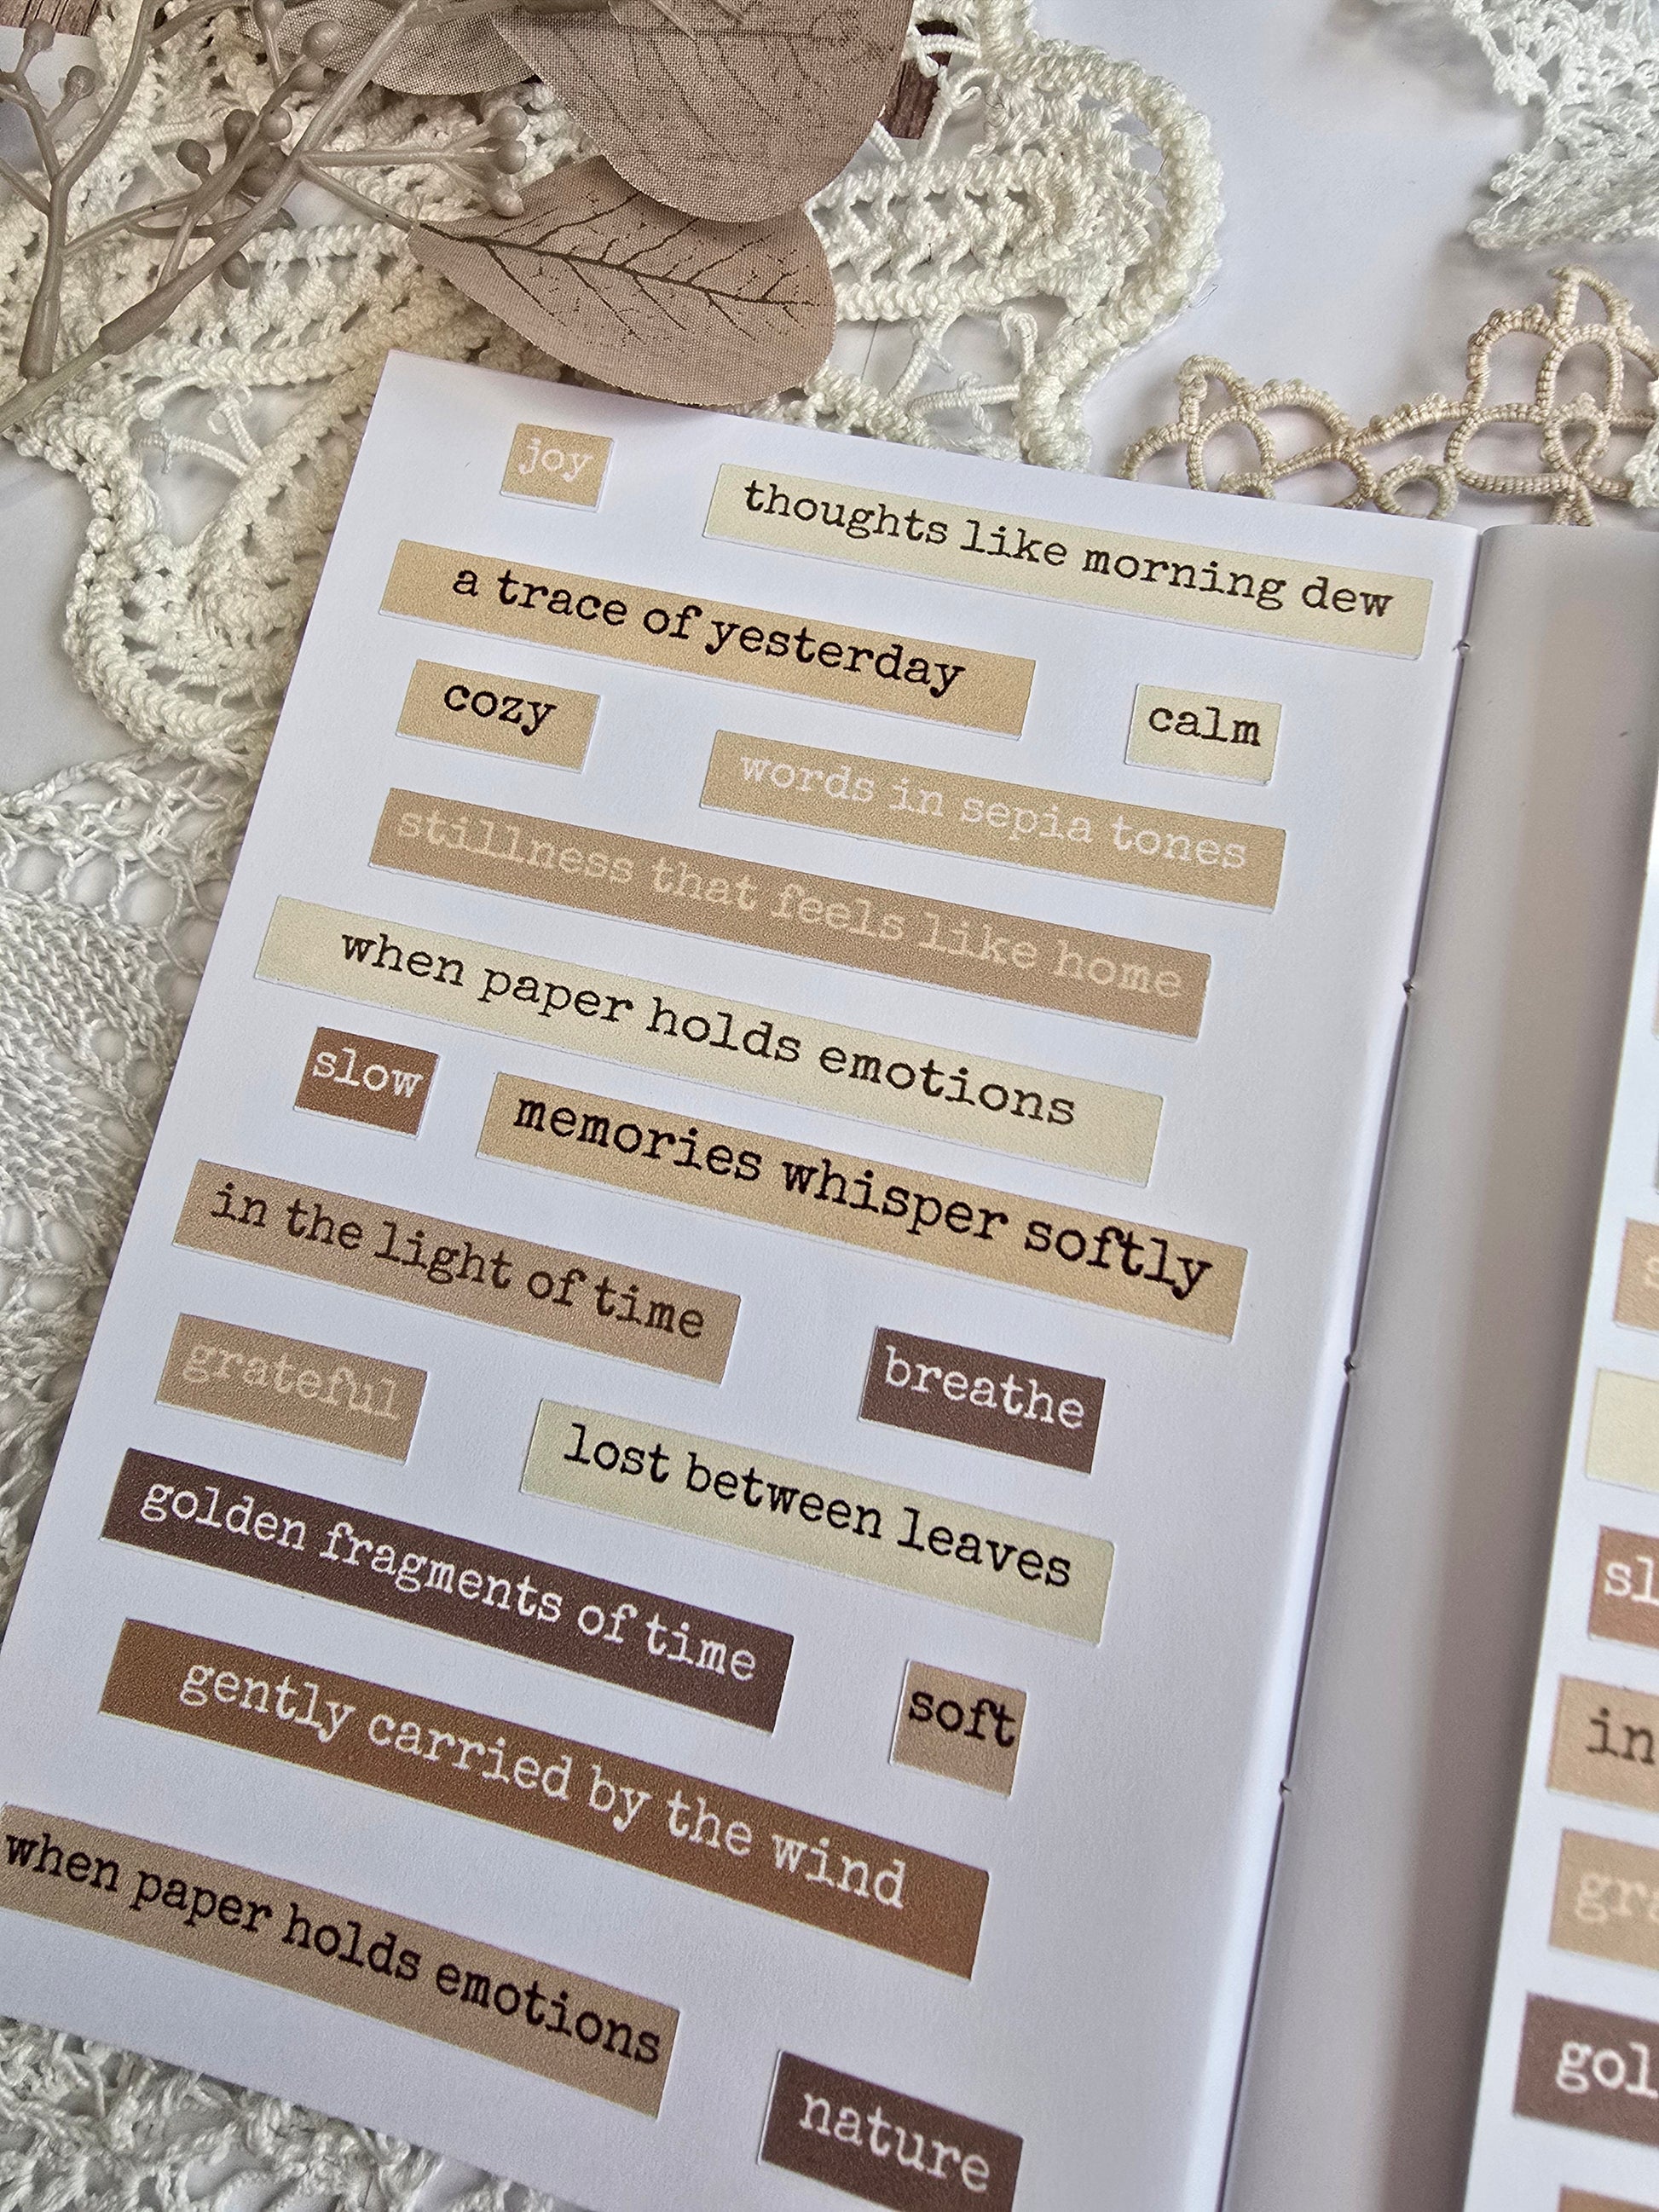 joy
thoughts like morning dew
a trace of yesterday
cozy
calm
words in sepia tones
stillness that feels like home
when paper holds emotions
slow
memories whisper softly
in the light of time
breathe
grateful
lost between leaves
golden fragments of time
soft
gently carried by the wind
when paper holds emotions
nature
in